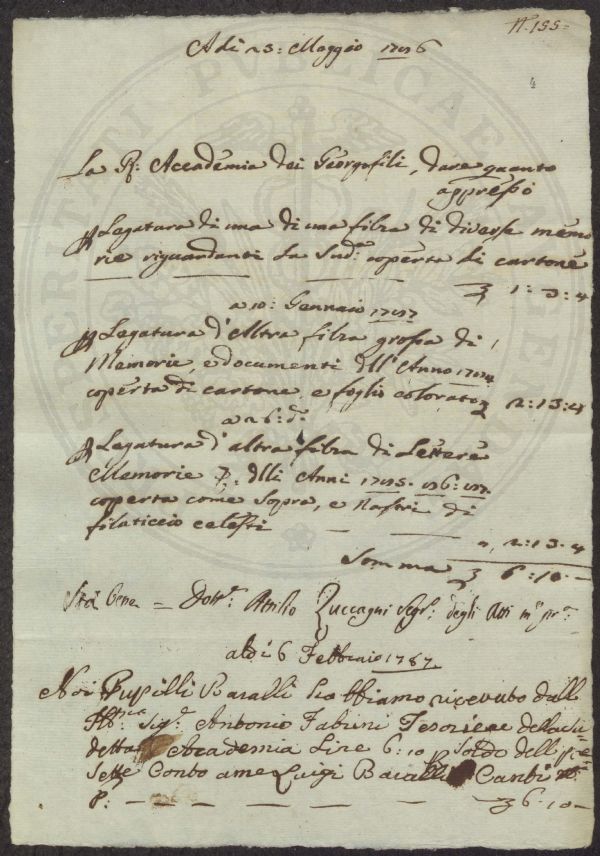 N. 155=
Adi 23: Maggio 1786
La R: Accademia dei Georgofili, dare quanto
appresso
Legatura di una di una filza di diverse memo
rie riguardanti La Sud.a coperta di cartone
— — — — 1: 3: 4
a 10: Gennaio 1787
Legatura d'Altra filza grossa di
Memorie, e documenti dll'Anno 1784
coperta di cartone, e foglio colorato 2: 13: 4
a 26: d.o
Legatura d'altra filza di Lettere
Memorie dlli Anni 1785. 86: 87.
coperta come Sopra, e Nastri di
filaticcio celesti — — 2: 13. 4
Somma 6: 10. —
Stà bene = Dott.e Attilio Zuccagni Seg.o degli Atti m.o pr.a
adì 6 Febbraio 1787.
Noi Pupilli Bacalli Abbiamo ricevuto dall
Sig.e Antonio Fabrini Tesoriere della Su
detta Accademia Lire 6: 10 Saldo dell pre
sette Conto a me Luigi
— — — — — 6. 10 —